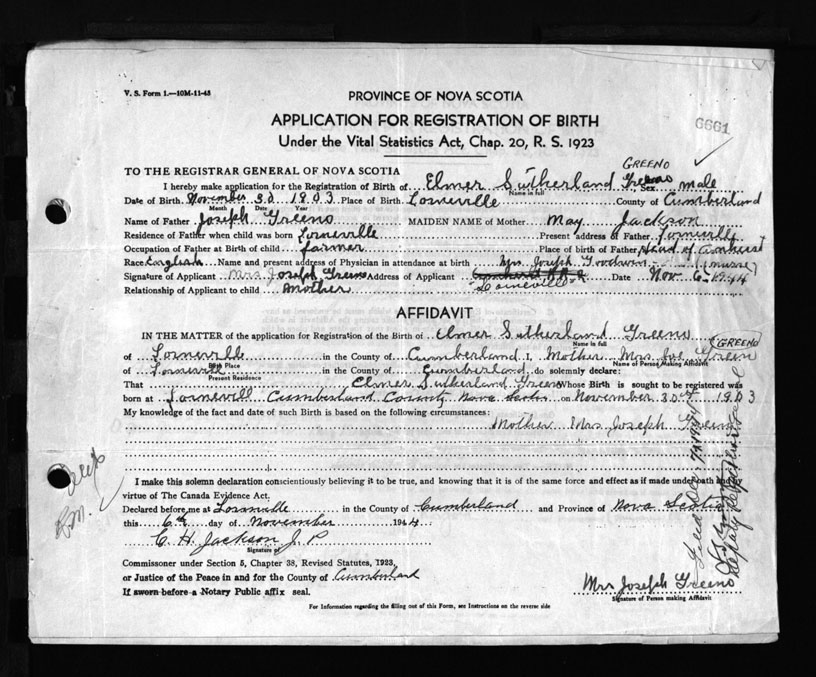 V. S. Form 1.—10M-11-43
PROVINCE OF NOVA SCOTIA
APPLICATION FOR REGISTRATION OF BIRTH
6661
Under the Vital Statistics Act, Chap. 20, R. S. 1923
TO THE REGISTRAR GENERAL OF NOVA SCOTIA
GREENO
I hereby make application for the Registration of Birth of Elmer Sutherland Greeno Sex male
Name in full
Date of Birth November 30 1903 Place of Birth Lorneville County of Cumberland
Month Date Year
Name of Father Joseph Greeno MAIDEN NAME of Mother May Jackson
Residence of Father when child was born Lorneville Present address of Father Lorneville
Occupation of Father at Birth of child farmer Place of birth of Father Head of Amherst
Race English Name and present address of Physician in attendance at birth Mrs Joseph Goodwin (nurse)
Signature of Applicant Mrs Joseph Greeno Address of Applicant Amherst Date Nov. 6 1944
Relationship of Applicant to child mother Lorneville
AFFIDAVIT
IN THE MATTER of the application for Registration of the Birth of Elmer Sutherland Greeno
Name in full
(GREENO)
of Lorneville in the County of Cumberland I, Mother Mrs Joe Green
Birth Place Name of Person Making Affidavit
of Lornevill in the County of Cumberland do solemnly declare:
Present Residence
That Elmer Sutherland Greeno Whose Birth is sought to be registered was
born at Lornevill Cumberland County Nova Scotia on November 30th 1903
My knowledge of the fact and date of such Birth is based on the following circumstances:
Mother Mrs Joseph Greeno
I make this solemn declaration conscientiously believing it to be true, and knowing that it is of the same force and effect as if made under oath and by
virtue of The Canada Evidence Act.
Declared before me at Lornville in the County of Cumberland and Province of Nova Scotia
this 6th day of November 1944
C. H. Jackson J. P
Signature of
Commissoner under Section 5, Chapter 38, Revised Statutes, 1923,
or Justice of the Peace in and for the County of Cumberland
If sworn before a Notary Public affix seal.
Mrs Joseph Greeno
Signature of Person making Affidavit
For Information regarding the filling out of this Form, see Instructions on the reverse side
Deputy Registrar General